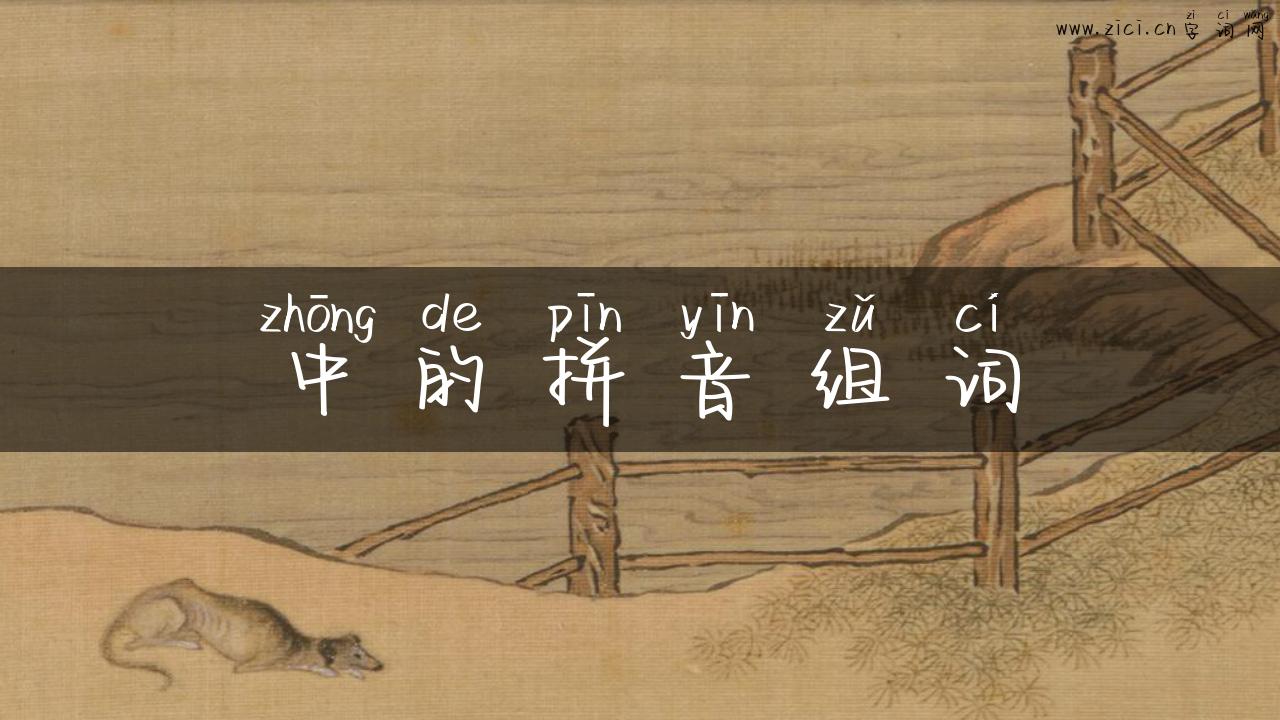 zi ci wang
www.zici.cn 字词网
zhōng de pīn yīn zǔ cí
中的拼音组词